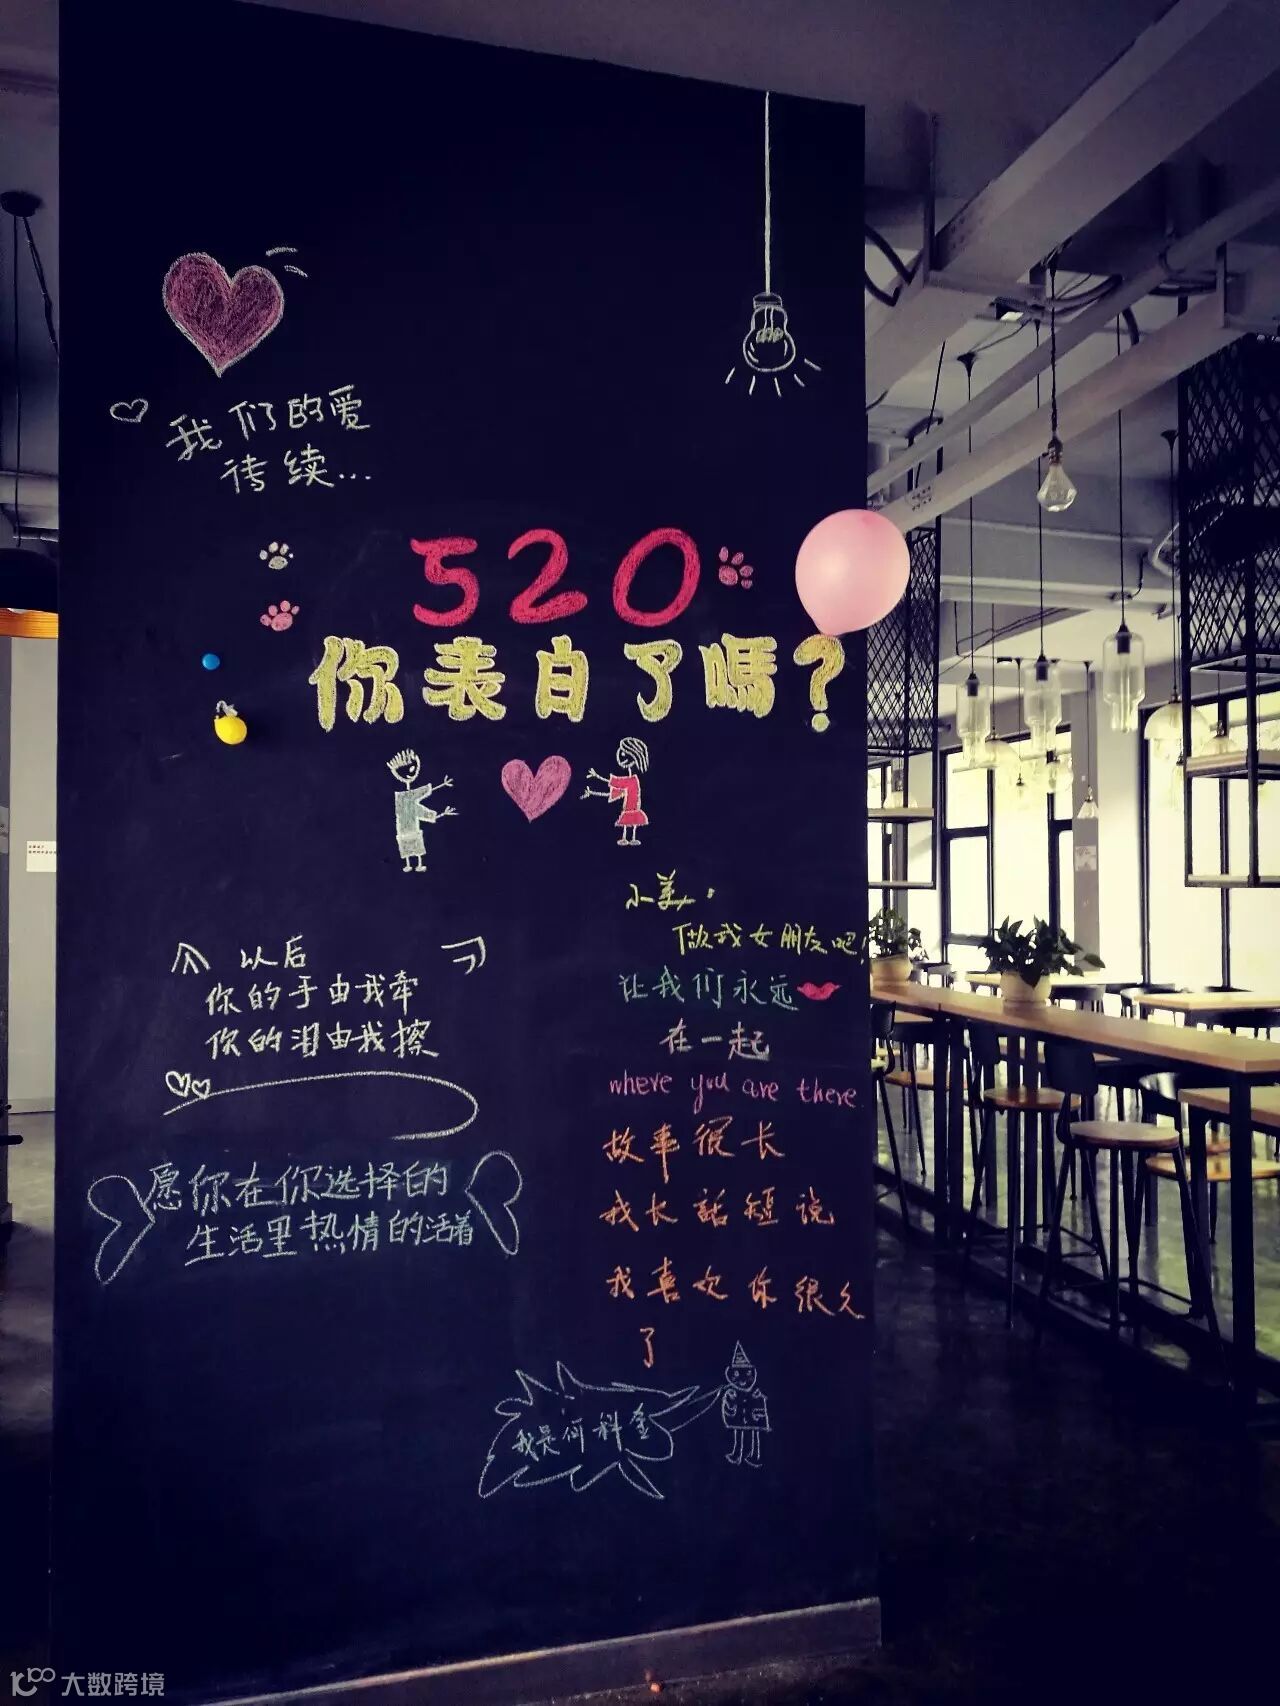 我们的爱
待续...
520
你表白了嗎?
小美,
做我女朋友吧!
让我们永远
在一起
where you are there
故事很长
我长話短说
我喜欢你很久
了
我是何科金
以后
你的手由我牵
你的泪由我擦
愿你在你选择的
生活里热情的活着
大数跨境